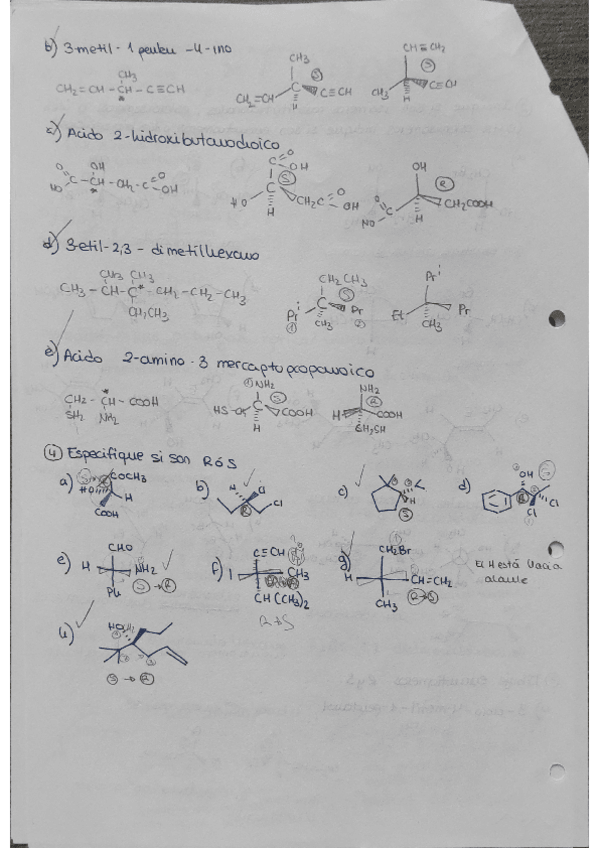 b) 3-metil-1 penten-4-ino
CH₂=CH-CH-C≡CH
CH₃
CH₃
CH₂=CH
C≡CH
H
S
CH=CH₂
CH₃
C≡CH
H
S
c) Acido 2-hidroxibutanodioico
OH
HO
C-CH-CH₂-C
O
OH
C
O
OH
S
HO
H
CH₂C
O
OH
OH
R
O
HO
H
CH₂COOH
d) 3-etil-2,3-dimetilhexano
CH₃ CH₃
CH₃-CH-C*-CH₂-CH₂-CH₃
CH₂CH₃
CH₂CH₃
S
Prⁱ
C
Pr
CH₃
Prⁱ
Et
Pr
CH₃
e) Acido 2-amino-3 mercaptopropanoico
CH₂-CH-COOH
SH NH₂
NH₂
S
C
COOH
H
NH₂
R
H
COOH
CH₂SH
4 Especifique si son R ó S
a)
COCH₃
HO
H
COOH
b)
H
Cl
R
c)
H
S
d)
OH
R
Cl
Cl
e)
CHO
H
NH₂
Ph
S → R
f)
C≡CH
I
CH₃
CH(CH₃)₂
R→S
g)
CH₂Br
H
CH=CH₂
CH₃
R→S
El H está hacia
delante
S → R